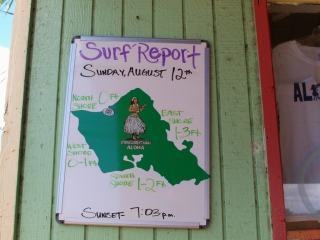 Surf Report
SUNDAY, AUGUST 12th
NORTH SHORE 1 Ft
EAST SHORE
1-3 Ft
WEST SHORE
0-1 Ft
SOUTH SHORE 1-2 Ft
ALOHA
SUNSET- 7:03 p.m.